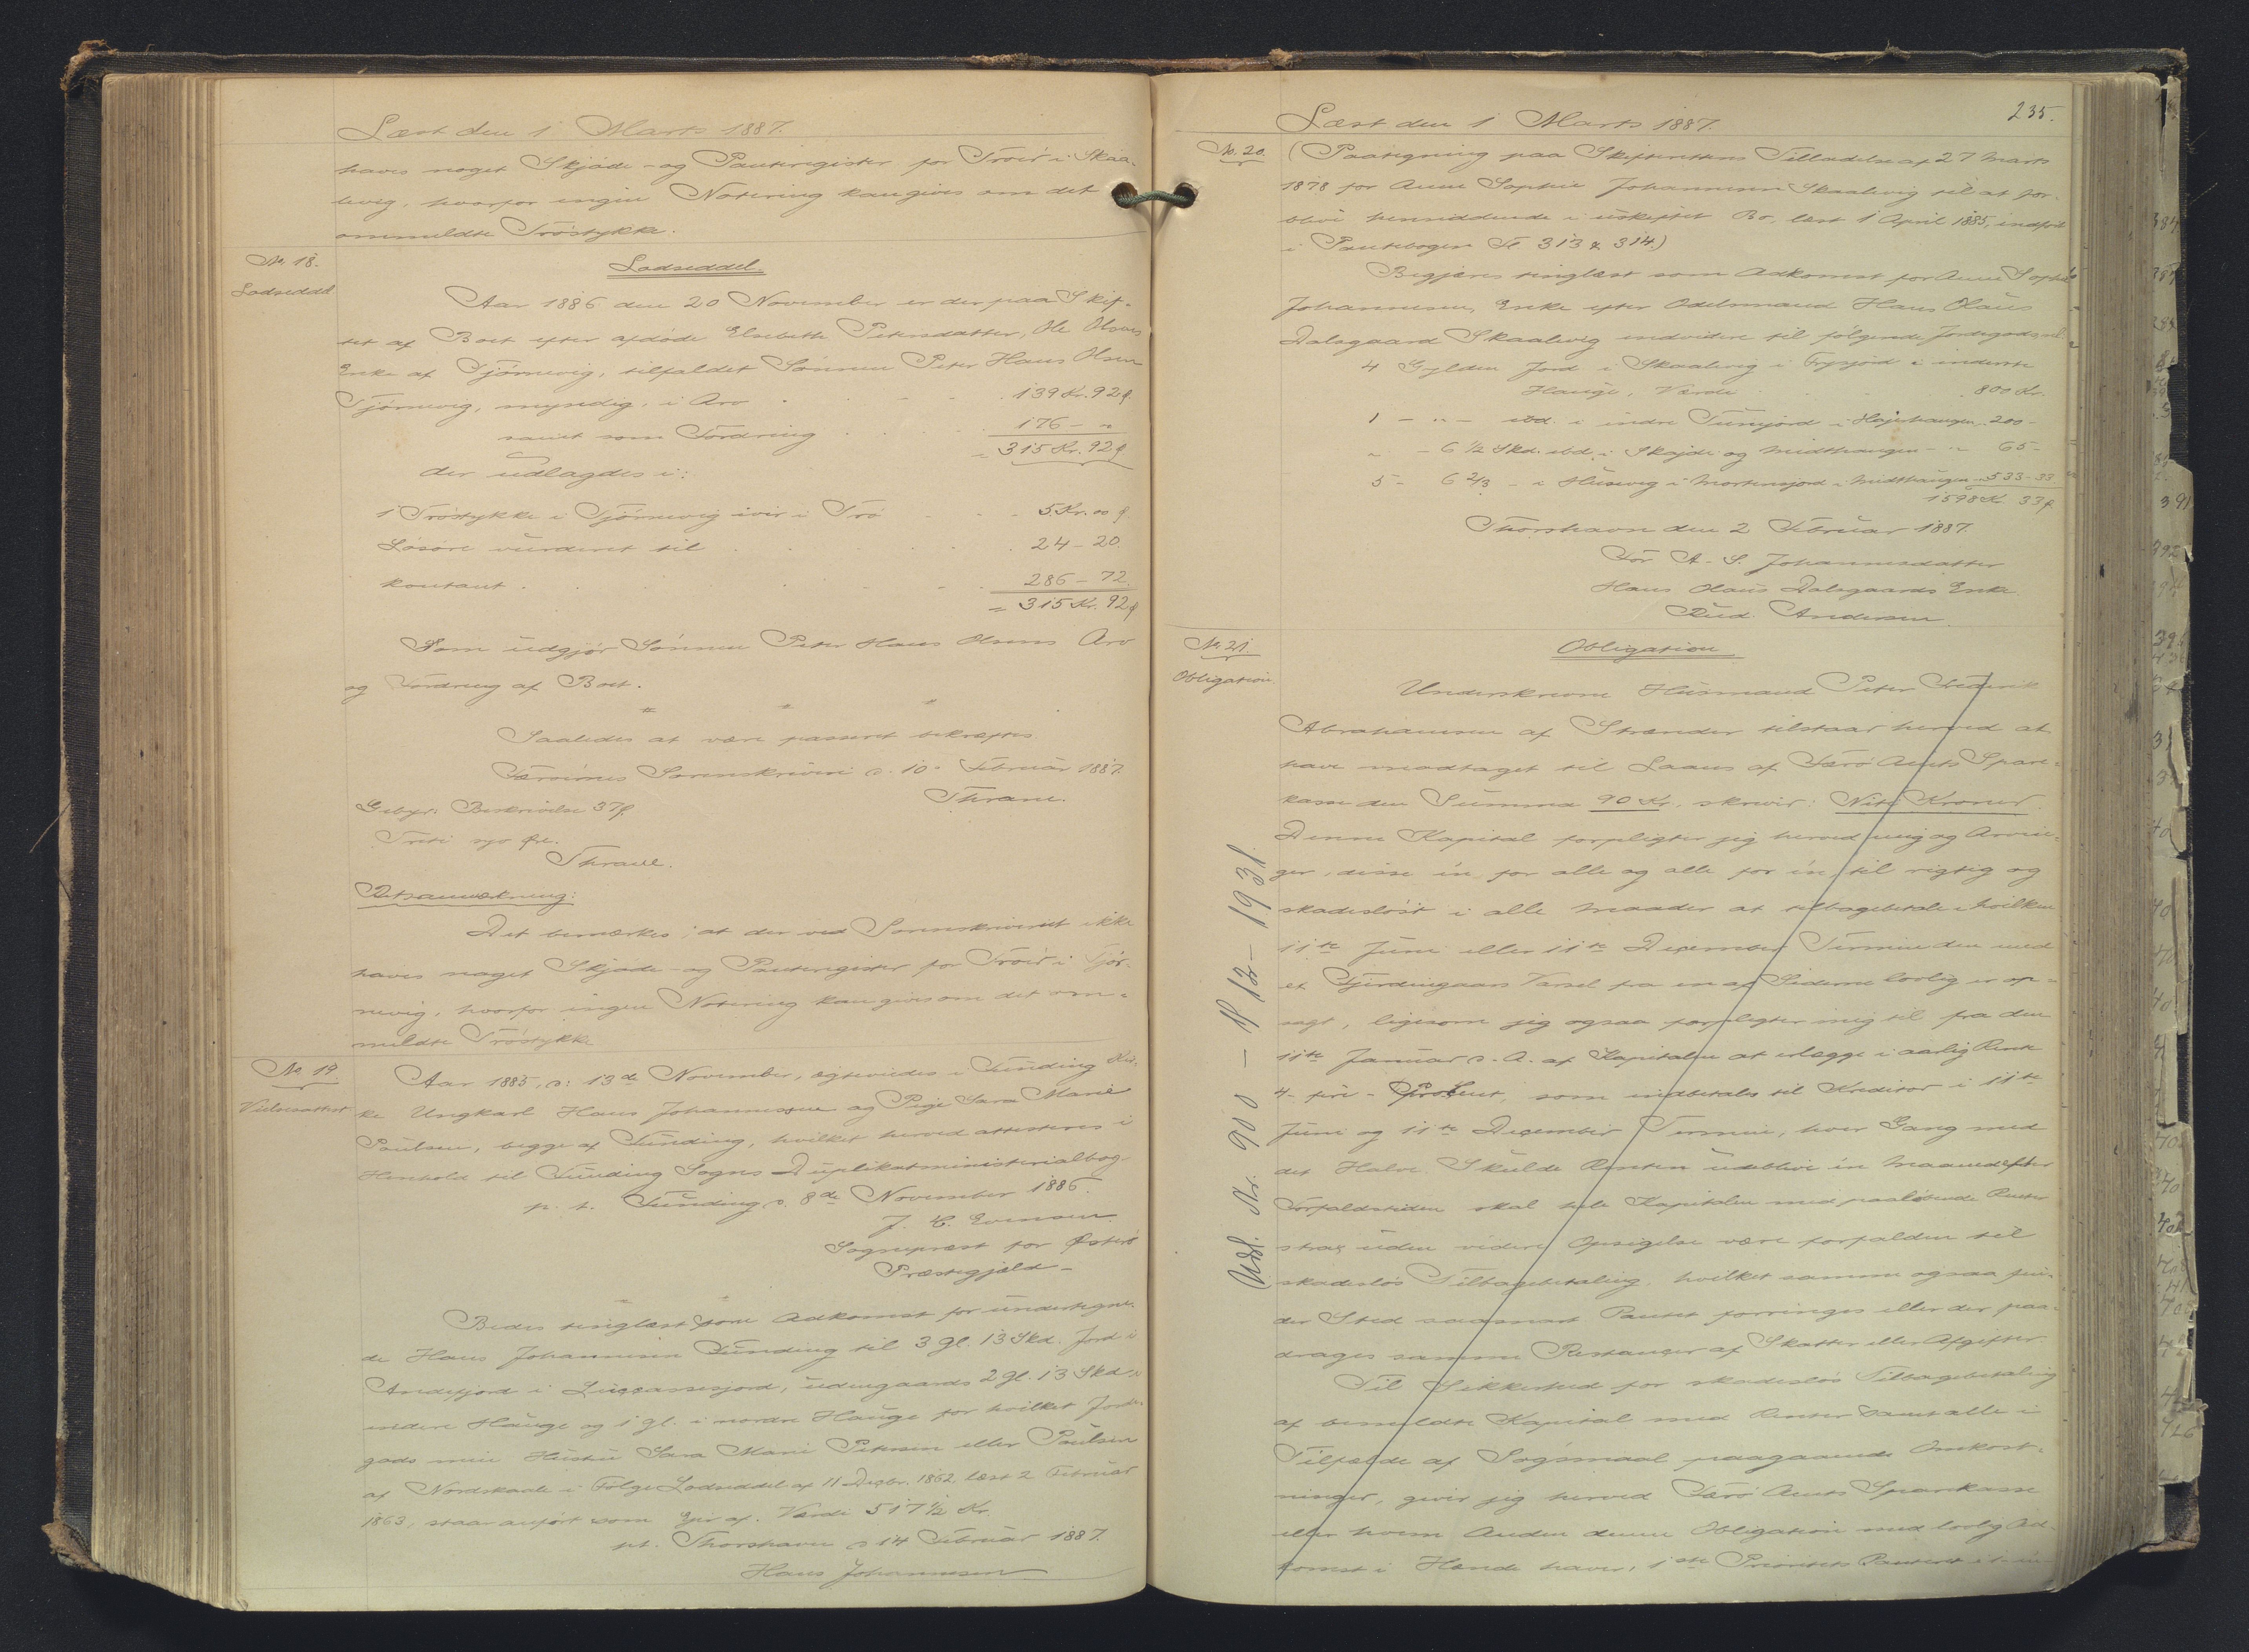 Læst den 1 Marts 1887.
haves noget Skjøde- og Panteregister for Trøir i Skaa-
levig, hvorfor ingen Notering kan gives om det
ommeldte Trøstykke.
No. 18.
Lodseddel
Lodseddel.
Aar 1886 den 20 November er der paa Skif-
tet af Boet efter afdøde Elsebeth Petersdatter, Ole Olsens
Enke af Tjørnevig, tilfaldet Sønnen Peter Hans Olsen
Tjørnevig, myndig, i Arv 139 Kr. 92 ø
samt som Fordring 176 - "
= 315 Kr. 92 ø
der udlagdes i:
1 Trøstykke i Tjørnevig ivir i Trø 5 Kr. 00 ø
Løsøre vurderet til 24 - 20.
kontant 286 - 72.
= 315 Kr. 92 ø
Som udgjør Sønnen Peter Hans Olsens Arv
og Fordring af Boet.
Saaledes at være passeret bekræftes.
Færøernes Sorenskriveri d. 10 Februar 1887.
Thrane.
Gebyr: Beskrivelse 37 ø
Treti syv Øre.
Thrane.
Retsanmærkning:
Det bemærkes, at der ved Sorenskriveriet ikke
haves noget Skjøde- og Panteregister for Trøir i Tjør-
nevig, hvorfor ingen Notering kan gives om det om-
meldte Trøstykke
No. 19.
Vielsesattest
Aar 1885, d: 13de November, ægteviedes i Funding Kir-
ke Ungkarl Hans Johannessen og Pige Sara Marie
Poulsen, begge af Funding, hvilket herved attesteres i
Henhold til Funding Sogns Duplikatministerialbog.
p. t. Funding d. 8de November 1886.
J. C. Evensen.
Sognepræst for Østerø
Præstegjæld -
Bedes tinglæst som Adkomst for undertegne-
de Hans Johannesen Funding til 3 gl. 13 Skd. Jord i
Andefjord i Luccassesjord, udengaards 2 gl. 13 Skd. i
indere Hauge og 1 gl. i nordre Hauge for hvilket Jorde-
gods min Hustru Sara Marie Petersen eller Poulsen
af Nordskaale i Følge Lodseddel af 11 Decbr. 1862 læst 2 Februar
1863, staar anført som Ejer af. Værdi 517 ½ Kr.
pt. Thorshavn d 14 Februar 1887.
Hans Johannesen
235.
Læst den 1 Marts 1887.
No. 20.
(Paategning paa Skifterettens Tilladelse af 27 Marts
1878 for Anne Sophie Johannesen Skaalevig til at for-
blive hensiddende i uskiftet Bo, læst 1 April 1885, indført
i Pantebogen Fl 313 & 314.)
Begjæres tinglæst som Adkomst for Anne Sophie
Johannesen, Enke efter Odelsmand Hans Olaus
Dalsgaard Skaalevig
4 Gylden Jord i Skaalevig i inderste
Hauge, Værdi 800 Kr.
1 - " - ibd. i indre Tunsjord i Højehaugen 200 -
" - 6 ½ Skd. ibd. i Skajde og Midthaugen - " 65 -
5 - 6 ⅔ - i Husevig i Mortensjord i Midthaugen 533 - 33
1598 Kr. 33 ø
Thorshavn den 2 Februar 1887.
For A. S. Johannesdatter
Hans Olaus Dalsgaards Enke.
Rud. Andersen.
No. 21
Obligation
Obligation
Underskrevne Husmand Peter Frederik
Abrahamsen af Strænder tilstaar herved at
have modtaget til Laans af Færø Amts Spare-
kasse den Summa 90 Kr., skriver: Niti Kroner.
Denne Kapital forpligter jeg herved mig og Arvin-
ger, disse én for alle og alle for én, til rigtig og
skadesløst i alle Maader at tilbagebetale i hvilken
11te Juni eller 11te December Termin den med
et Fjerdingaars Varsel fra en af Siderne lovlig er op-
sagt, ligesom jeg ogsaa forpligter mig til fra den
11te Januar d. A. af Kapitalen at erlægge i aarlig Rente
4 - fire - Procent, som indbetales til Kreditor i 11te
Juni og 11te December Termin, hver Gang med
det Halve. Skulde Renten udeblive én Maaned efter
Forfaldstiden skal hele Kapitalen med paaløbende Renter
strax uden videre Opsigelse være forfalden til
skadesløs Tilbagebetaling, hvilket samme ogsaa fin-
der Sted saasnart Pantet forringes eller der paa-
drages samme Restancer af Skatter eller Afgifter.
Til Sikkerhed for skadesløs Tilbagebetaling
af bemeldte Kapital med Renter samt alle i
Tilfælde af Søgsmaal paagaaende Omkost-
ninger, giver jeg herved Færø Amts Sparekasse
eller hvem Anden denne Obligation med lovlig Ad-
komst i Hænde haver, 1ste Prioritets Panteret i
Udsl. Nr. 900 - 11/12 - 1931.